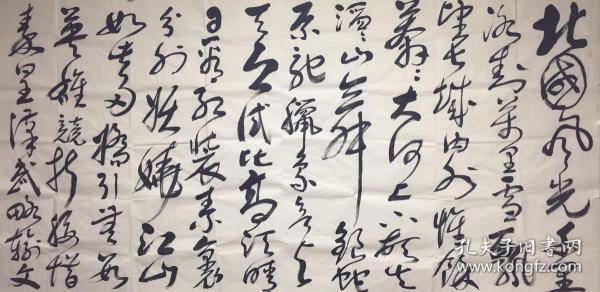 北國风光千里
冰封萬里雪飘
望长城内外惟餘
莽〻大河上下顿失
滔〻山舞銀蛇
原驰蠟象欲与
天公试比高须晴
日看红装素裹
分外妖娆江山
如此多娇引無数
英雄競折腰惜
秦皇漢武略输文
孔夫子旧书网